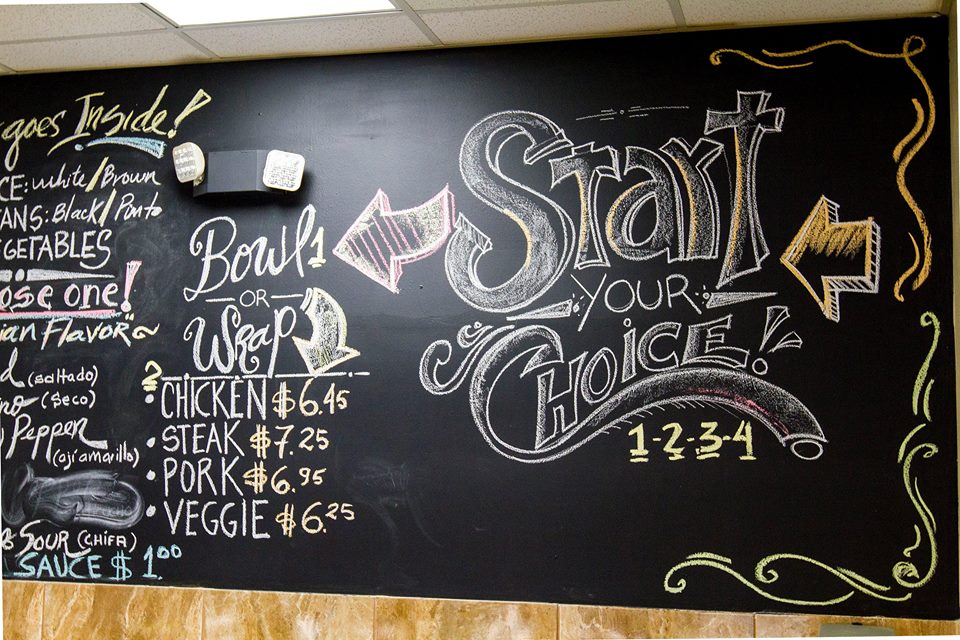 goes Inside!
CE: White/Brown
ANS: Black/Pinto
EGETABLES
ose one!
ian Flavor"~
(saltado)
(Seco)
Pepper
(ají amarillo)
SOUR (CHIFA)
SAUCE $1.00
Bowl 1
OR
Wrap
2
• CHICKEN $6.45
• STEAK $7.25
• PORK $6.95
• VEGGIE $6.25
Start
YOUR
CHOICE!
1-2-3-4